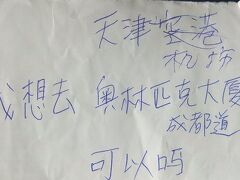 天津空港
机场
我想去 奥林匹克大厦
成都道
可以吗